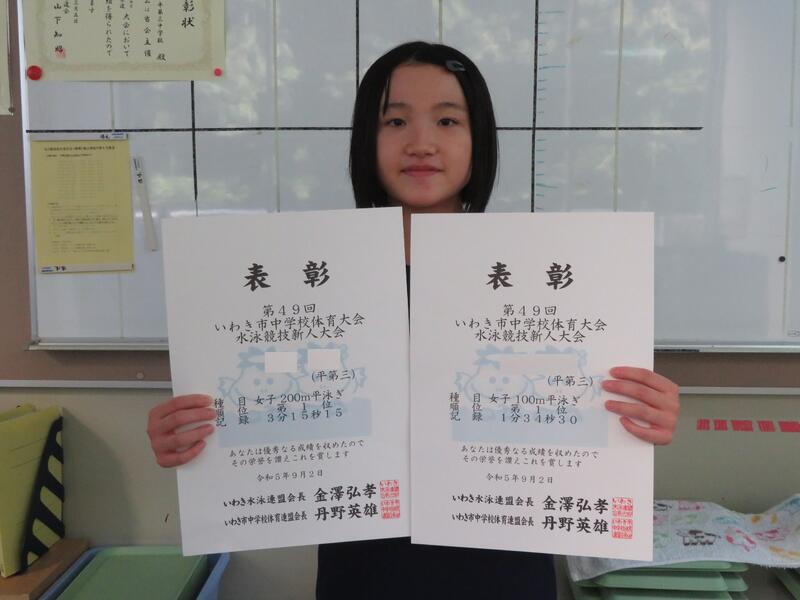 彰状
年第三中学校 殿
ムは当会主催
大会において
績を得られたので
ます
三月五日
山下知昭
表彰
第49回
いわき市中学校体育大会
水泳競技新人大会
(平第三)
種目 女子200m平泳ぎ
順位 第1位
記録 3分15秒15
あなたは優秀なる成績を収めたので
その学誉を讃えこれを賞します
令和5年9月2日
いわき水泳連盟会長 金澤弘孝
いわき市中学校体育連盟会長 丹野英雄
表彰
第49回
いわき市中学校体育大会
水泳競技新人大会
(平第三)
種目 女子100m平泳ぎ
順位 第1位
記録 1分34秒30
あなたは優秀なる成績を収めたので
その学誉を讃えこれを賞します
令和5年9月2日
いわき水泳連盟会長 金澤弘孝
いわき市中学校体育連盟会長 丹野英雄